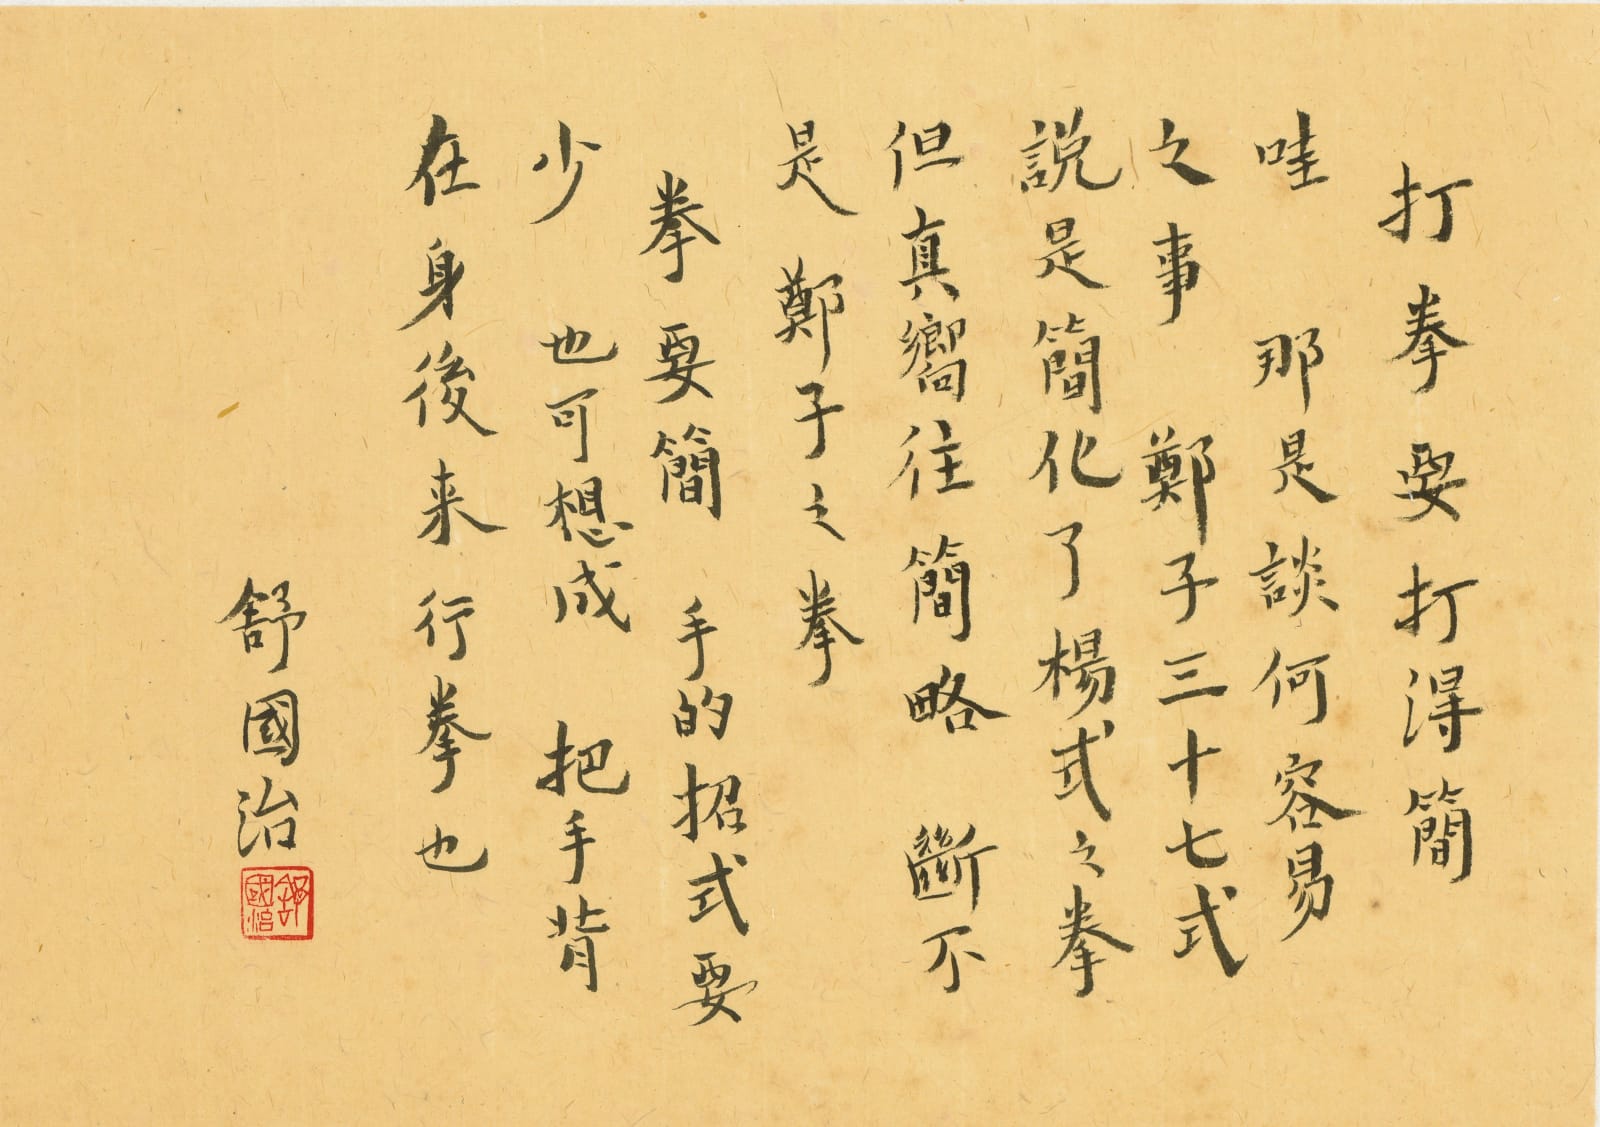 打拳要打得簡
哇 那是談何容易
之事 鄭子三十七式
說是簡化了楊式之拳
但真嚮往簡略 斷不
是 鄭子之拳
拳要簡 手的招式要
少 也可想成 把手背
在身後来行拳也
舒國治
舒國治